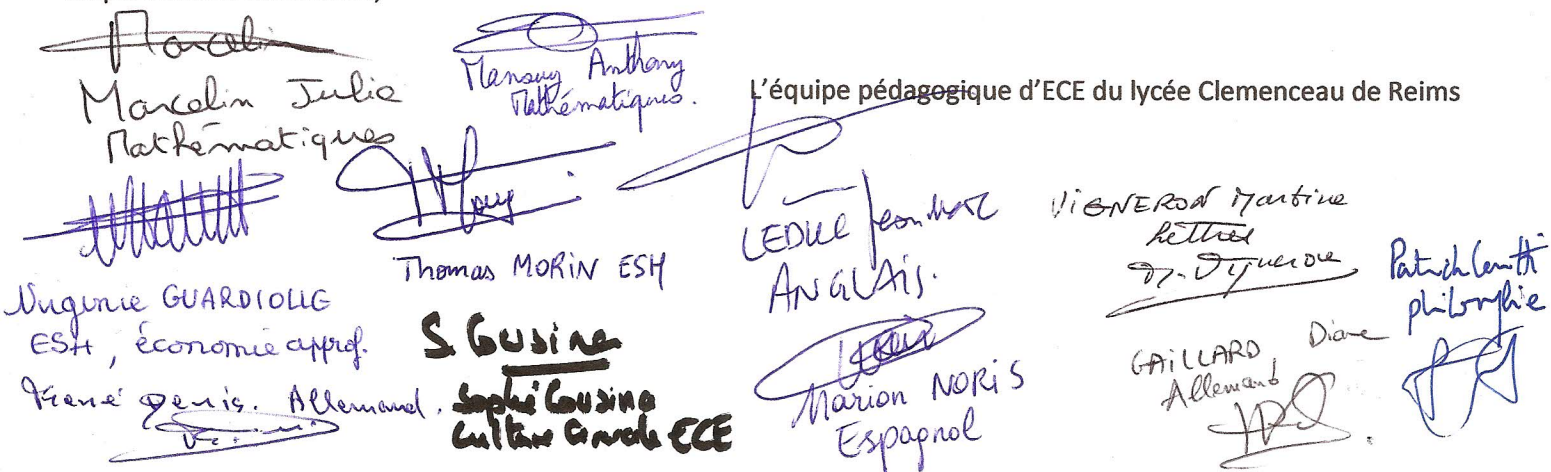 Marcelin
Marcelin Julie
Mathématiques
Mansuy Anthony
Mathématiques.
L'équipe pédagogique d'ECE du lycée Clemenceau de Reims
Thomas MORIN ESH
LEDUC Jean Marc
ANGLAIS.
VIGNERON Martine
Lettres
M. Vigneron
Patrick
philosophie
Virginie GUARDIOLLE
ESH, économie approf.
Denis. Allemand.
S. Cousina
Sophie Cousina
Culture Générale ECE
Marion NORIS
Espagnol
GAILLARD Diane
Allemand